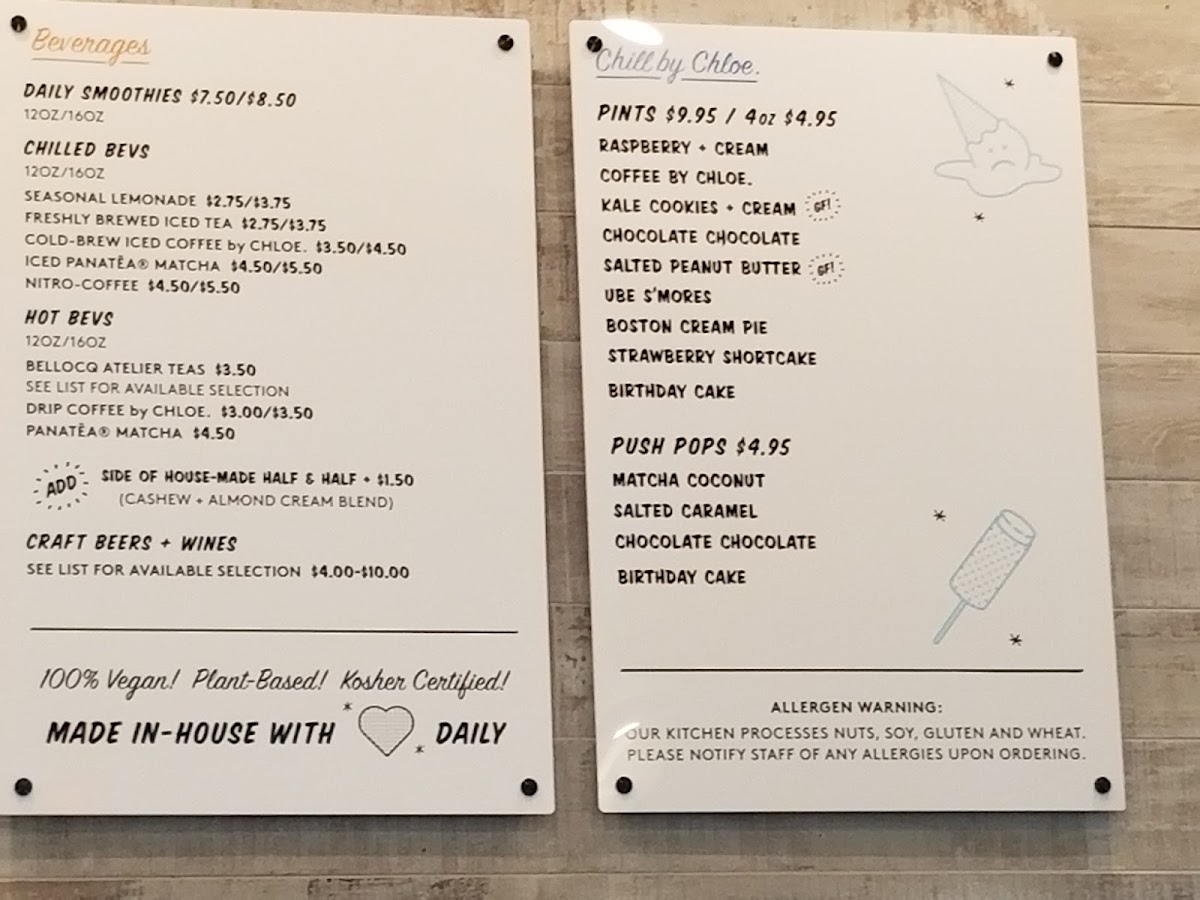 Beverages
DAILY SMOOTHIES $7.50/$8.50
12OZ/16OZ
CHILLED BEVS
12OZ/16OZ
SEASONAL LEMONADE $2.75/$3.75
FRESHLY BREWED ICED TEA $2.75/$3.75
COLD-BREW ICED COFFEE by CHLOE. $3.50/$4.50
ICED PANATĒA® MATCHA $4.50/$5.50
NITRO-COFFEE $4.50/$5.50
HOT BEVS
12OZ/16OZ
BELLOCQ ATELIER TEAS $3.50
SEE LIST FOR AVAILABLE SELECTION
DRIP COFFEE by CHLOE. $3.00/$3.50
PANATĒA® MATCHA $4.50
ADD SIDE OF HOUSE-MADE HALF & HALF + $1.50
(CASHEW + ALMOND CREAM BLEND)
CRAFT BEERS + WINES
SEE LIST FOR AVAILABLE SELECTION $4.00-$10.00
100% Vegan! Plant-Based! Kosher Certified!
MADE IN-HOUSE WITH DAILY
Chill by Chloe.
PINTS $9.95 / 4oz $4.95
RASPBERRY + CREAM
COFFEE BY CHLOE.
KALE COOKIES + CREAM GF!
CHOCOLATE CHOCOLATE
SALTED PEANUT BUTTER GF!
UBE S'MORES
BOSTON CREAM PIE
STRAWBERRY SHORTCAKE
BIRTHDAY CAKE
PUSH POPS $4.95
MATCHA COCONUT
SALTED CARAMEL
CHOCOLATE CHOCOLATE
BIRTHDAY CAKE
ALLERGEN WARNING:
OUR KITCHEN PROCESSES NUTS, SOY, GLUTEN AND WHEAT.
PLEASE NOTIFY STAFF OF ANY ALLERGIES UPON ORDERING.